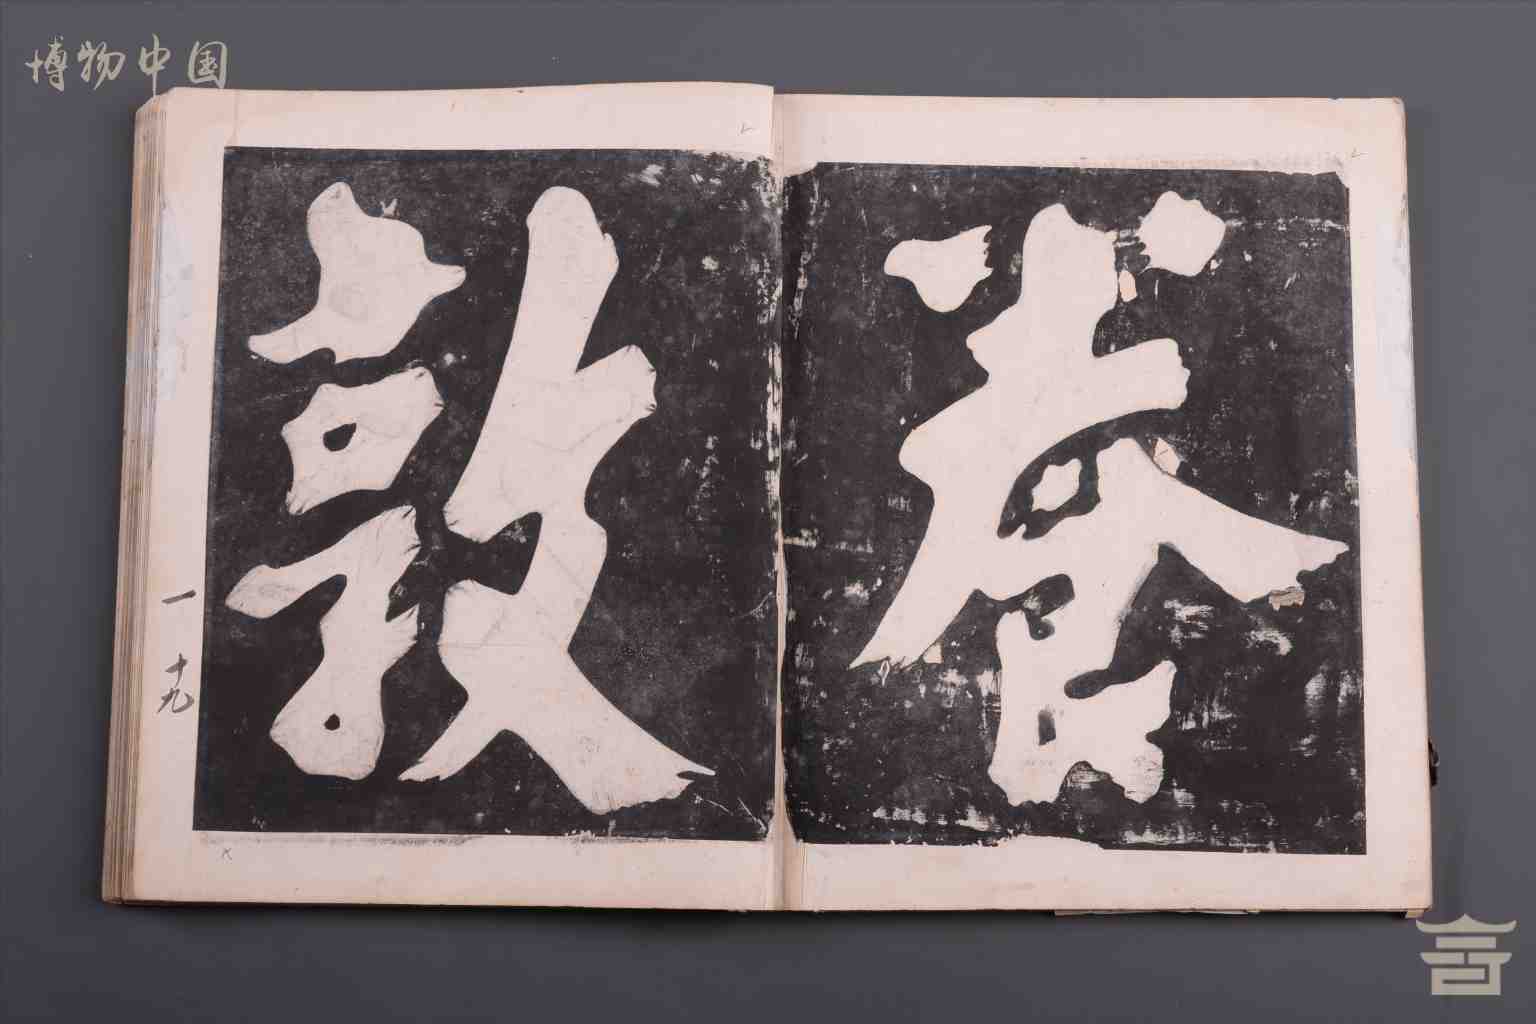 博物中国
眷
敦
一 十九